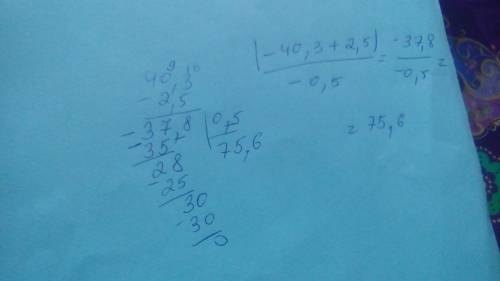 40,3
- 2,5
- 37,8 | 0,5
- 35 75,6
28
- 25
30
- 30
0
(-40,3+2,5) / -0,5 = -37,8 / -0,5 =
= 75,6